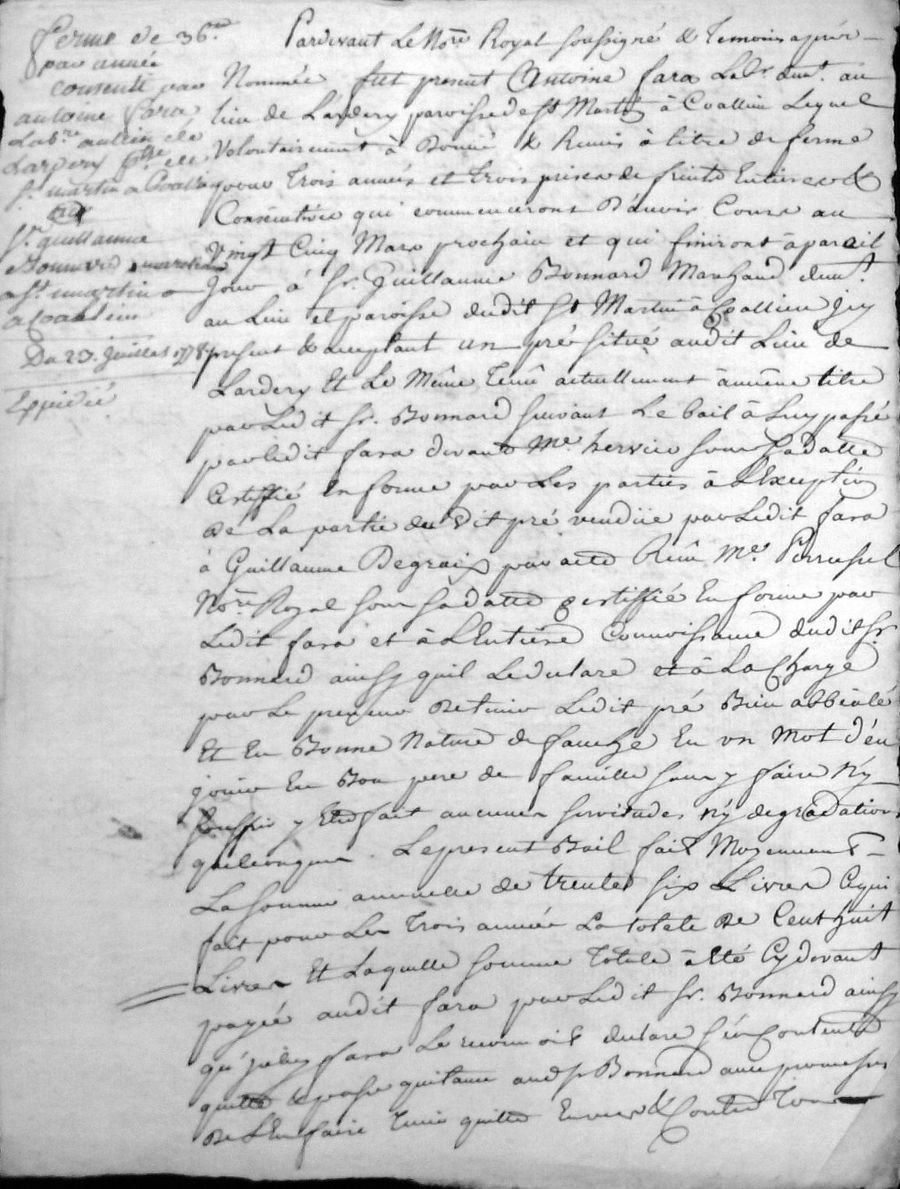 ferme de 36.tt
par année
consentie par
antoine fara
Lab.re au lieu de
Lardery p.sse de
S.t martin a Coallieu
a
S.r guillaume
Bonnard marchand
a S.t martin
a Coallieu
Du 23. Juillet 178
Expédié
Pardevant Le No.re Royal soussigné & Temoins après
Nommés fut present Antoine fara Lab.r dem.t au
lieu de Lardery paroisse de S.t Martin à Coallieu Lequel
Volontairement à Donné & Remis à titre de ferme
pour Trois années et trois prises de fruits Entieres &
Consécutives qui commenceront D'avoir Cours au
Vingt Cinq Mars prochain et qui finiront à pareil
Jour à S.r Guillaume Bonnard Marchand dem.t
au Lieu et paroisse dudit S.t Martin à Coallieu Icy
present & acceptant un pré situé audit Lieu de
Lardery Et Le Même Tenû actuellement à même titre
par Ledit S.r Bonnard suivant Le bail à Luy passé
par ledit fara devant M.e hervier sous sa datte
Certiffié En forme par Les parties à L'Exception
de La partie du dit pré vendüe par Ledit fara
à Guillaume Degraix par acte Reçu M.e
No.re Royal sous sa datte Certiffié En forme par
Ledit fara et à L'Entiere Connoissance dudit S.r
Bonnard ainsy quil Le declare et à La Charge
par Le preneur De tenir Ledit pré Bien abbéalé
Et En Bonne Nature de fauchage En un Mot d'en
jouir En Bon pere de famille sans y faire N'y
souffrir y Etre fait aucunes servitudes N'y degradations
quelconques. Le present Bail fait Moyennant
La somme annuelle de trente six Livres Ce qui
fait pour Les Trois années La totale De Cent huit
Livres Et Laquelle somme Totale à Eté Cy devant
payée audit fara par Ledit S.r Bonnard ainsy
qu'jceluy fara Le reconnoit declare s'en Contente
quitte & passe quitance aud. S.r Bonnard avec promesses
De L'En faire Tenir quitte Envers & Contre Tous